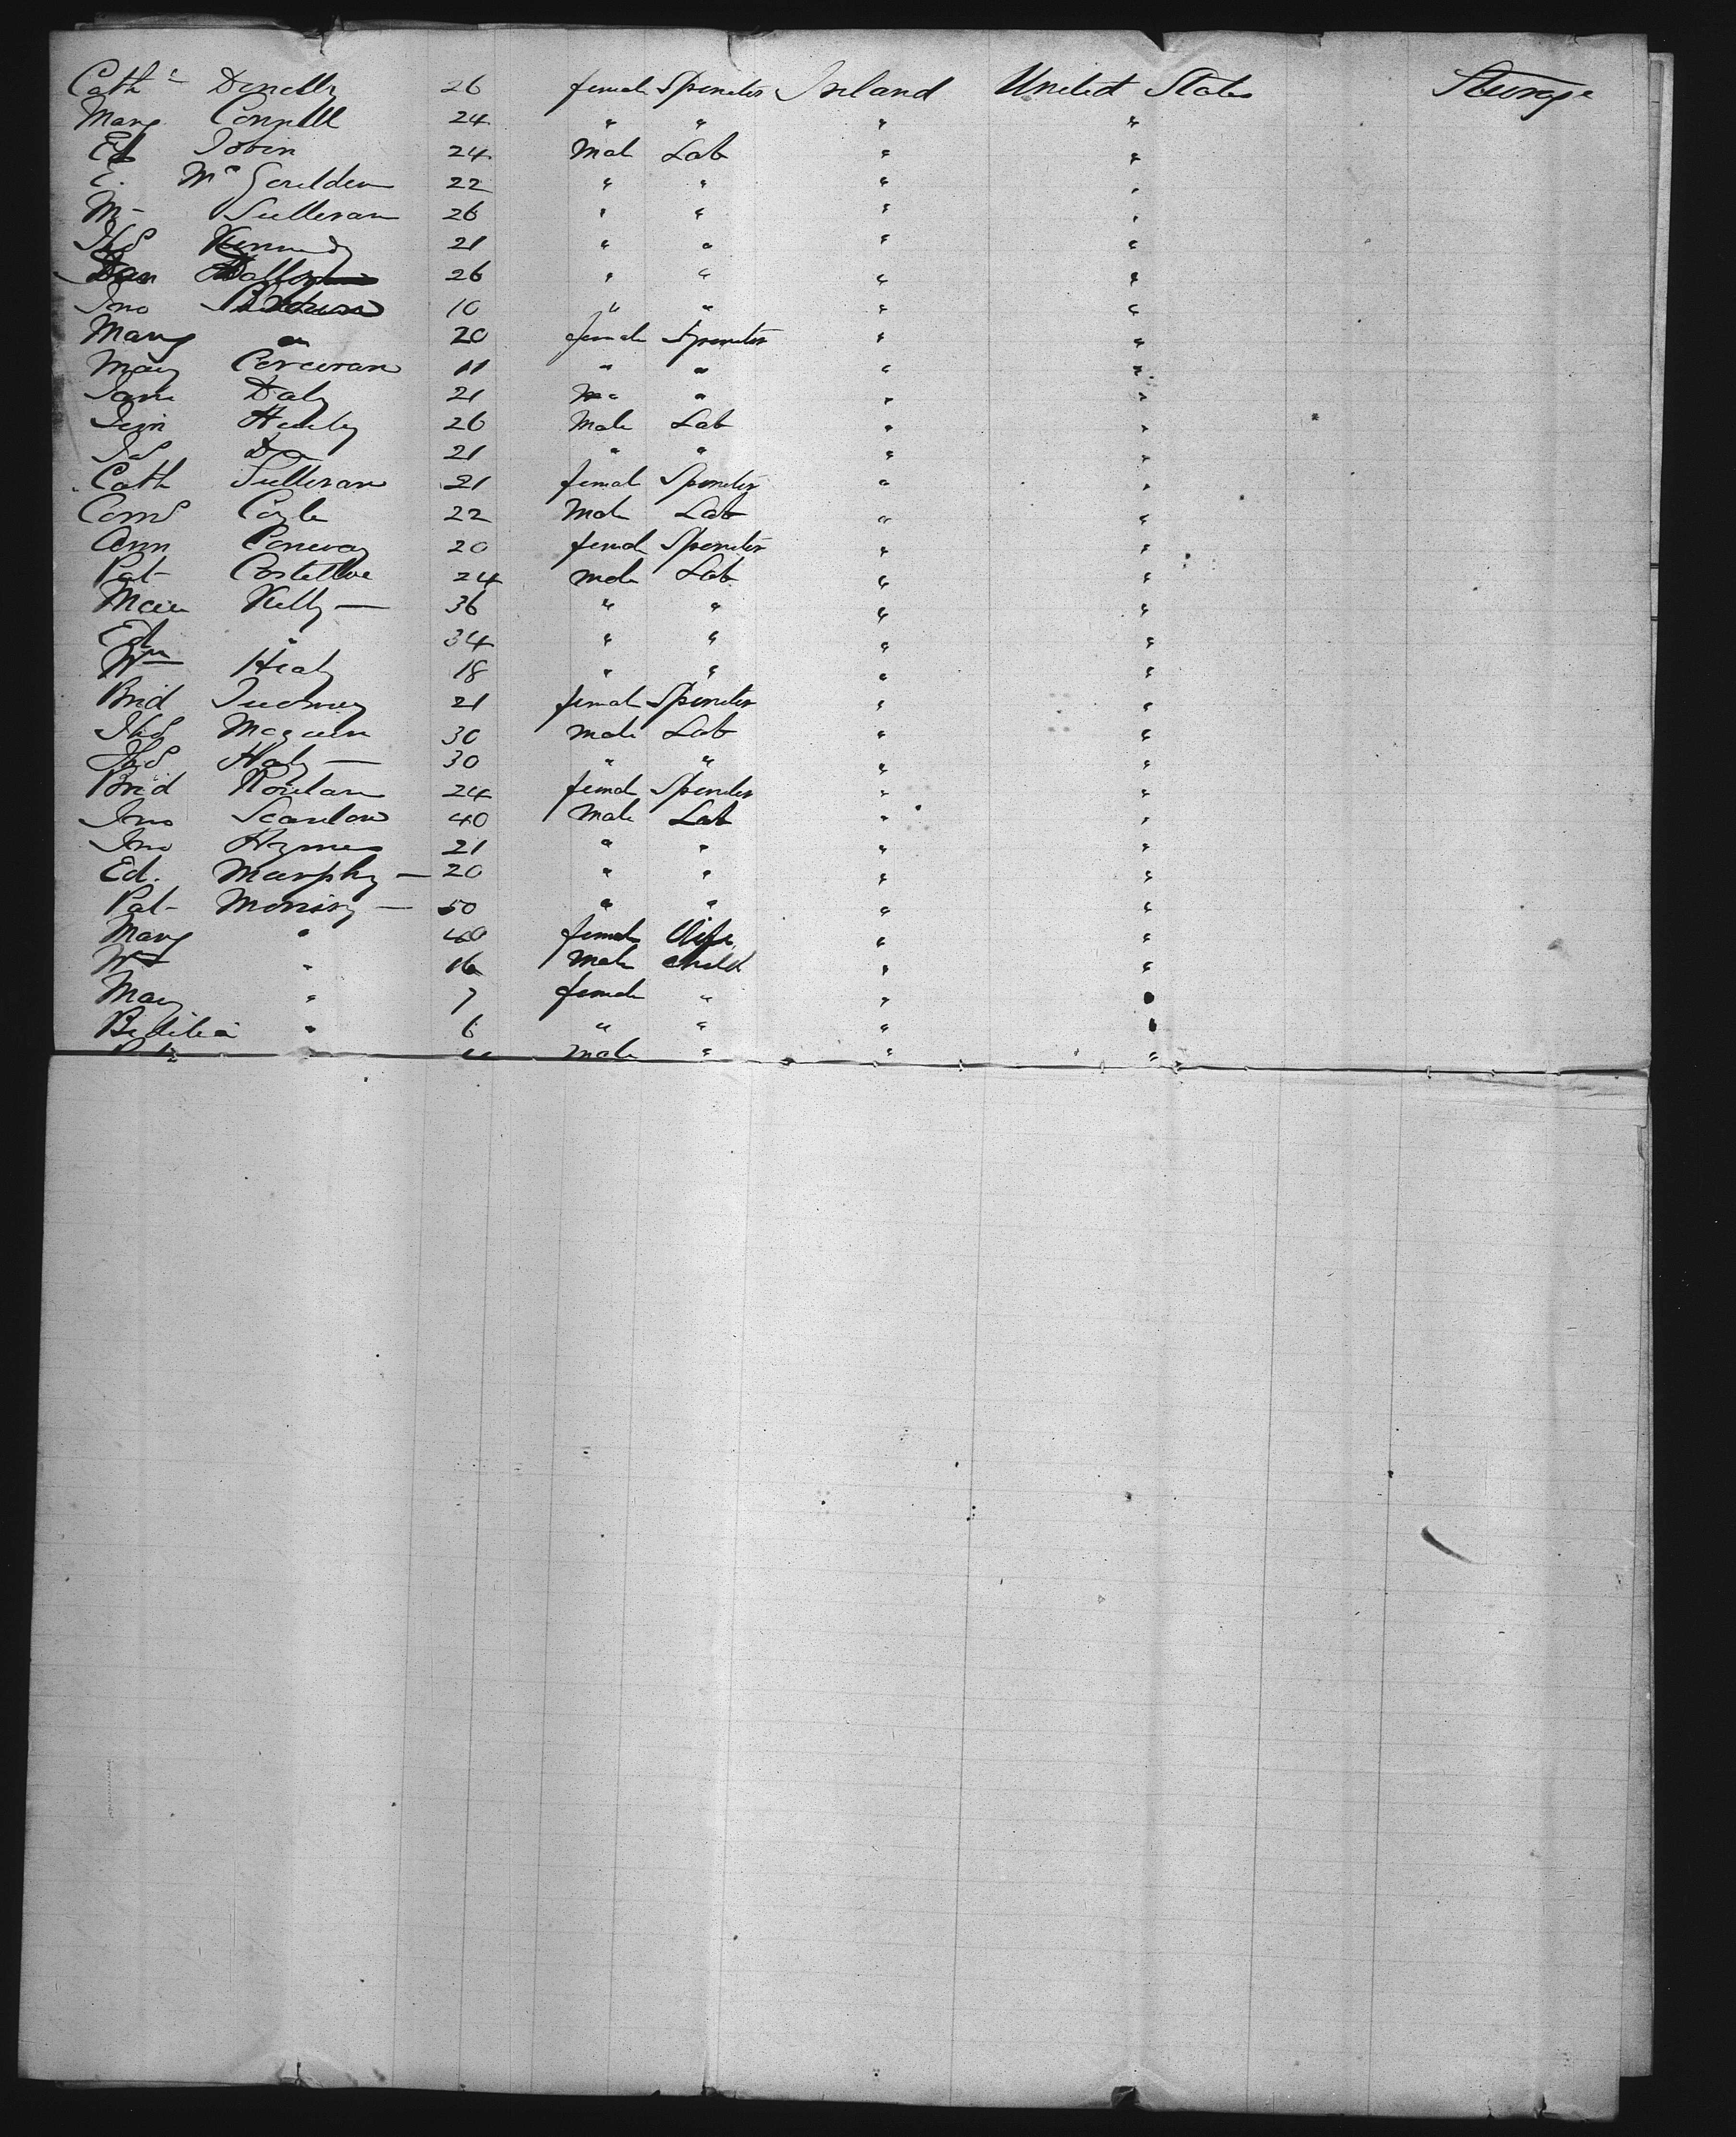 Cath Donelly 26 female Spinster Ireland United States Steerage
Marg Connell 24 " " " "
Ed Tobin 24 Male Lab " "
E. Mc 22 " " " "
M- Sullivan 26 " " " "
Thos Kennedy 21 " " " "
Dan 26 " " " "
Jno 10 " " " "
Marg " 20 female Spinster " "
Mary Corcoran 11 " " " "
Jane Daly 21 " " "
Tim Healy 26 Male Lab " "
Js Do 21 " " " "
Cath Sullivan 21 female Spinster " "
Corns Coyle 22 Male Lab " "
Ann Conway 20 female Spinster " "
Pat Costelloe 24 male Lab " "
Kelly — 36 " " " "
Ed " 34 " " " "
Wm Healy 18 " " " "
Brid 21 female Spinster " "
Thos 30 male Lab " "
Thos — 30 " " " "
Brid 24 female Spinster " "
Jno Scanlon 40 Male Lab " "
Jno Hynes 21 " " " "
Ed. Murphy — 20 " " " "
Pat- — 50 " " " "
Marg " 40 female Wife " "
Wm " male child " "
Mary " 7 female " " "
Bedilia " 6 " " " "
male " " "